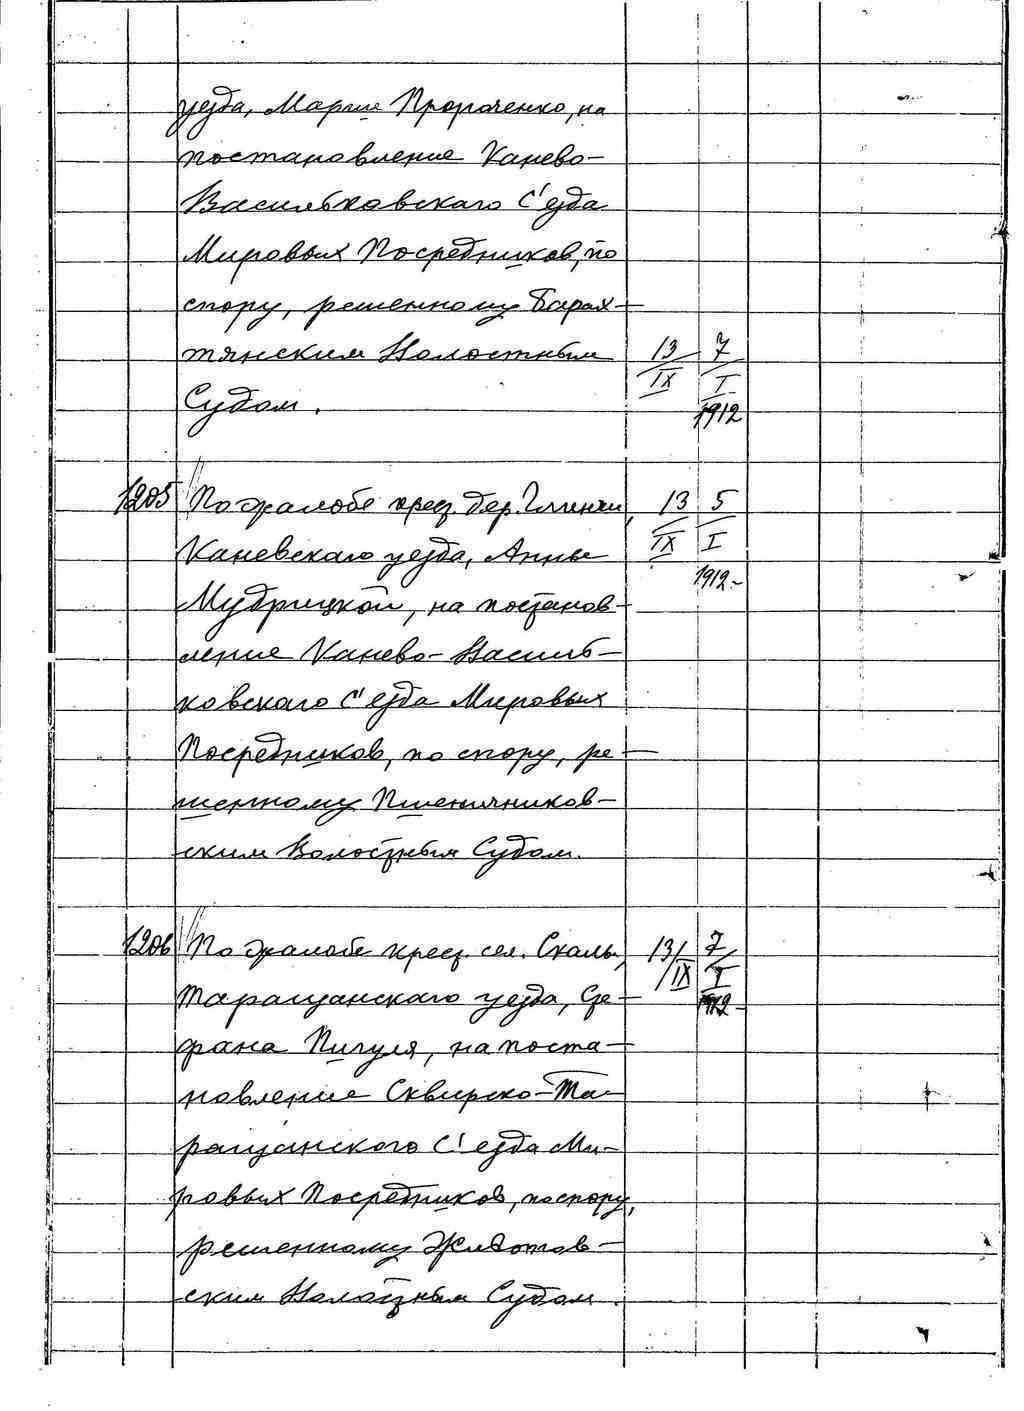 уезда, Марии Пророченко, на
постановление Канево-
Васильковскаго С'езда
Мировых Посредников, по
спору, решенному Барах-
тянским Волостным 13 7
Судом. IX I
1912
1205 По жалобе крест. дер. Глинчи, 13 5
Каневскаго уезда, Анны IX I
Мудрицкой, на постанов- 1912
ление Канево-Василь-
ковскаго С'езда Мировых
Посредников, по спору, ре-
шенному Пшеничников-
ским Волостным Судом.
1206 По жалобе крест. сел. Скалы, 13 7
Таращанскаго уезда, Сте- IX I
фана Пигуля, на поста- 1912
новление Сквирско-Та-
ращанского С'езда Ми-
ровых Посредников, по спору,
решенному Животов-
ским Волостным Судом.